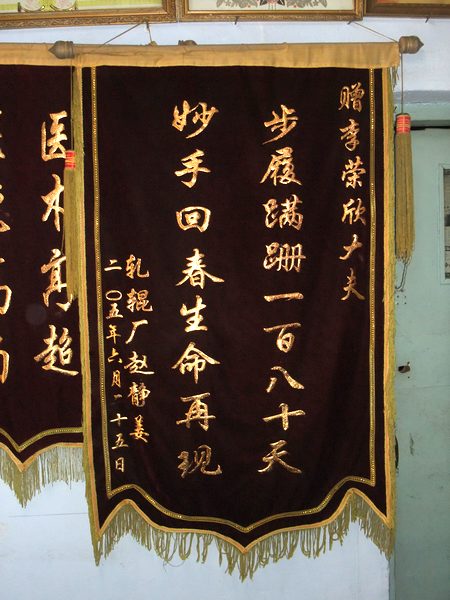 赠李荣欣大夫
步履蹒跚一百八十天
妙手回春生命再现
轧辊厂赵静姜
二〇五年六月一十五日
医术高超